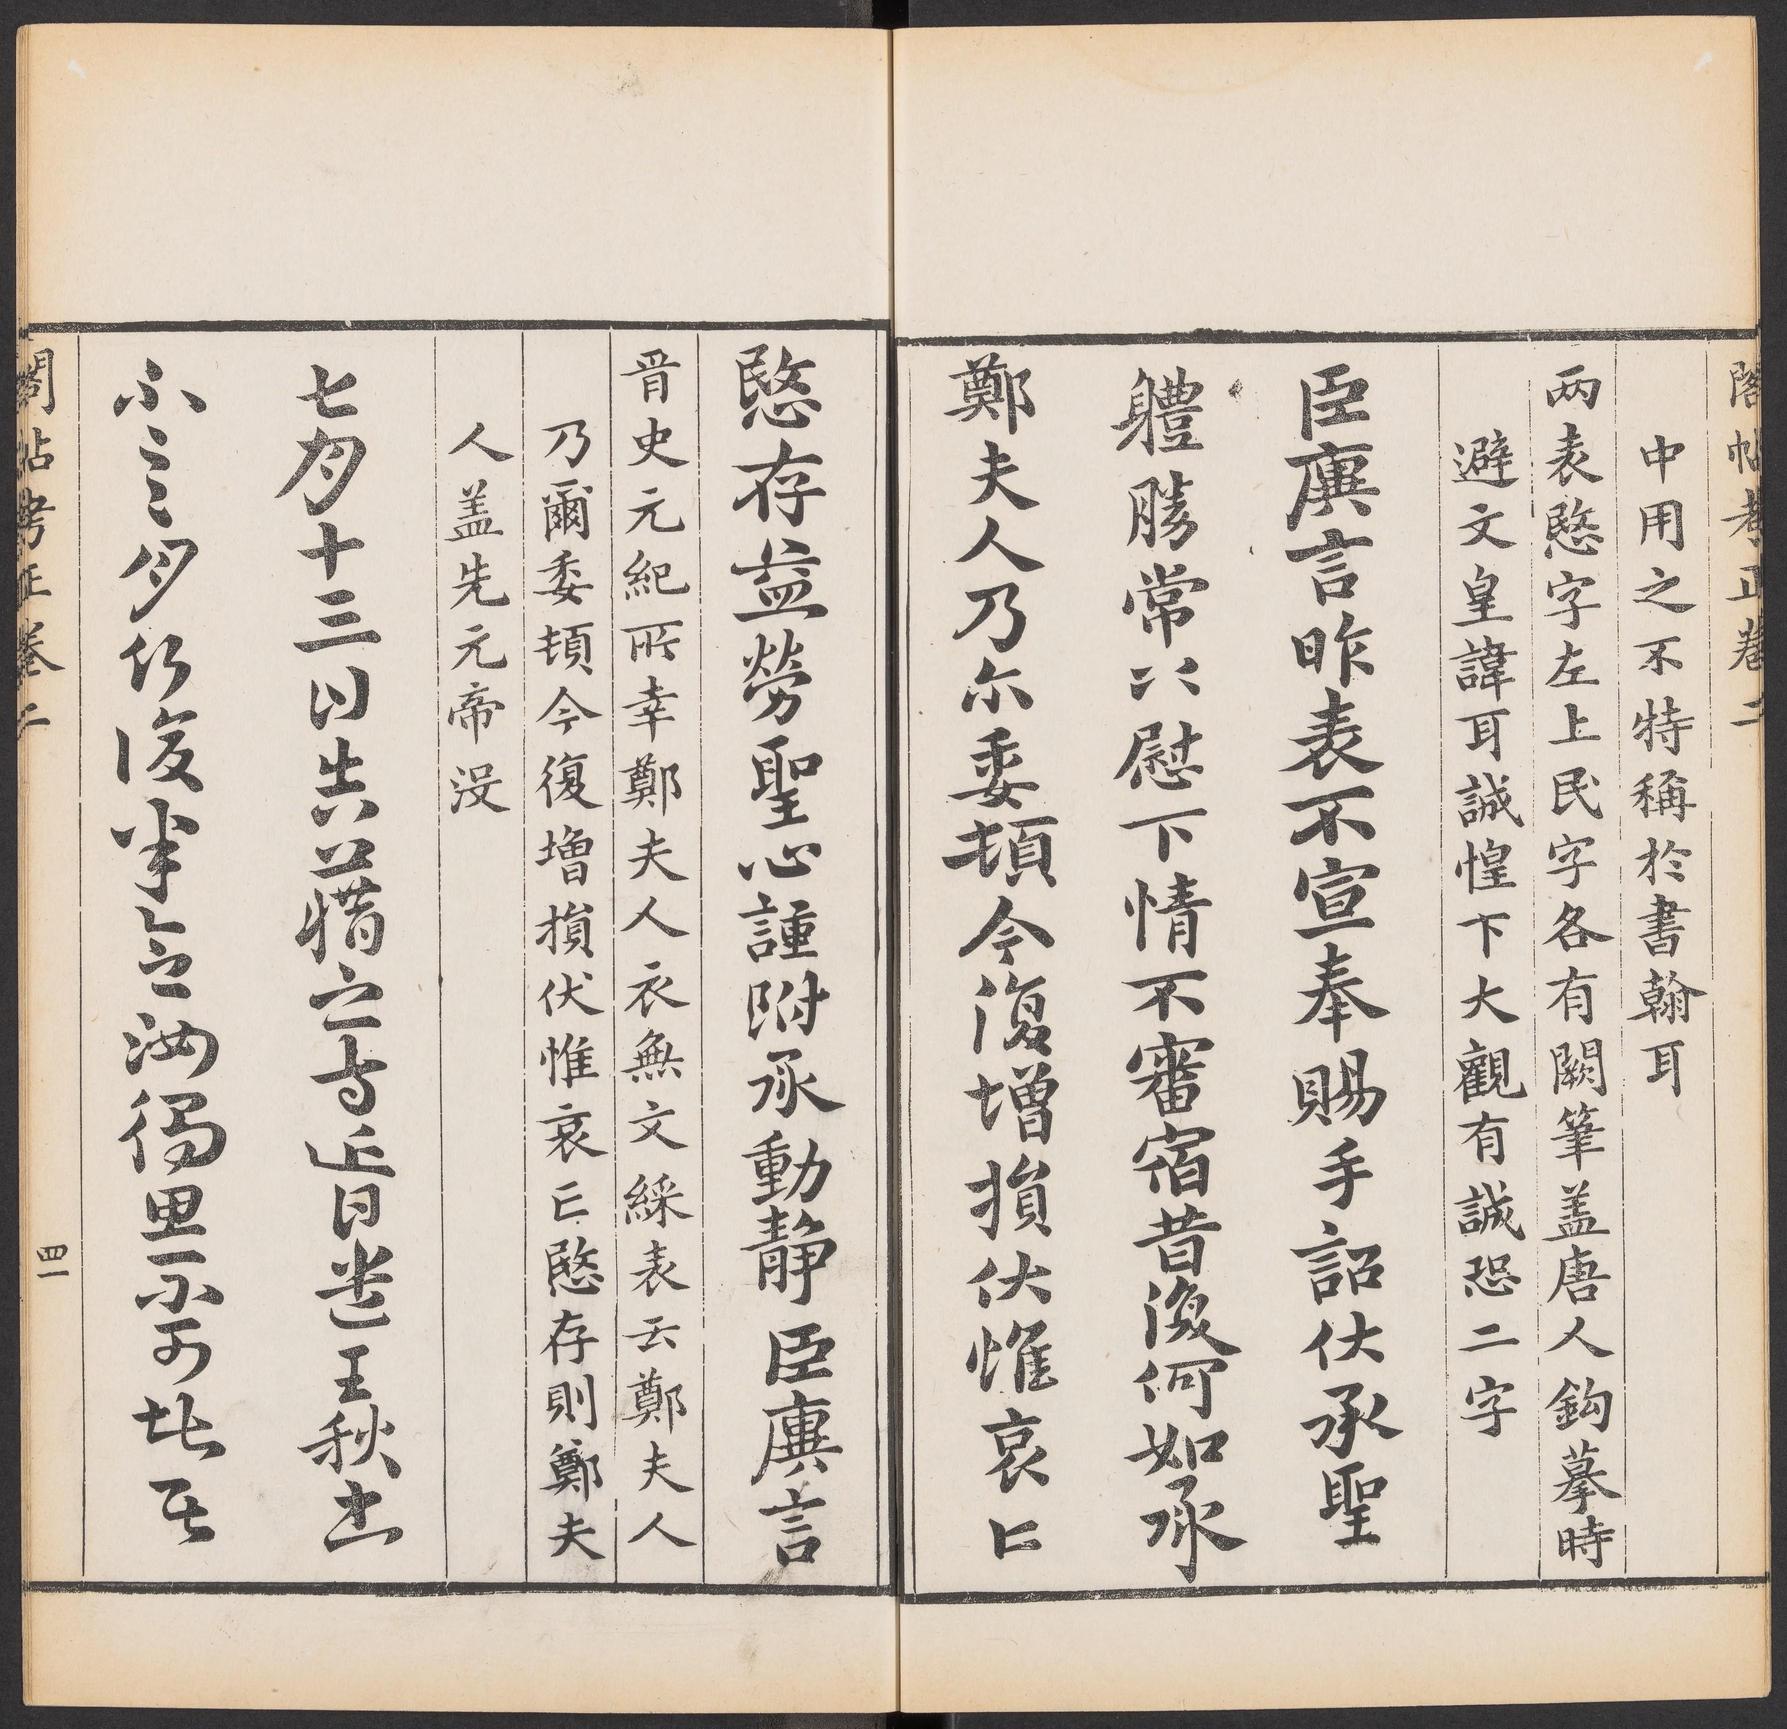 閣帖考正卷二
中用之不特稱於書翰耳
两表愍字左上民字各有闕筆盖唐人鈎摹時
避文皇諱耳誠惶下大觀有誠恐二字
臣廙言昨表不宣奉賜手詔伏承聖
軆勝常以慰下情不審宿昔復何如承
鄭夫人乃尓委頓今復增損伏惟哀亡
愍存益勞聖心謹附承動靜臣廙言
晋史元紀所幸鄭夫人衣無文綵表云鄭夫人
乃爾委頓今復增損伏惟哀亡愍存則鄭夫
人盖先元帝没
七月十三日告藉之等近日遣王秋
不三月行復半念汝獨思不可
閣帖考正卷二
四一